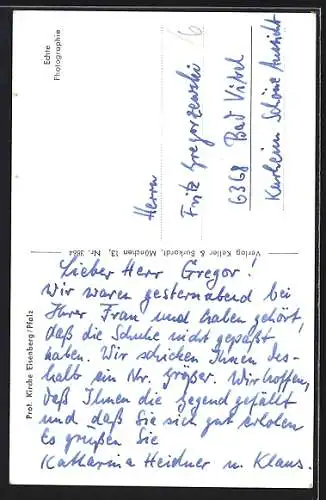 Lieber Herr Gregor!
Wir waren gesternabend bei
Ihrer Frau und haben gehört,
daß die Schuhe nicht gepaßt
haben. Wir schicken Ihnen des-
halb ein Nr. größer. Wir hoffen,
daß Ihnen die Gegend gefällt
und daß Sie sich gut erholen
Es grüßen Sie
Katharina Heidner u. Klaus.
Prot. Kirche Eisenberg/Pfalz
Verlag Keller & Burkardt, München 13, Nr. 3664
Echte
Photographie
Herrn
Fritz Gregorzewski
6368 Bad Vilbel
Kurheim Schöne Aussicht